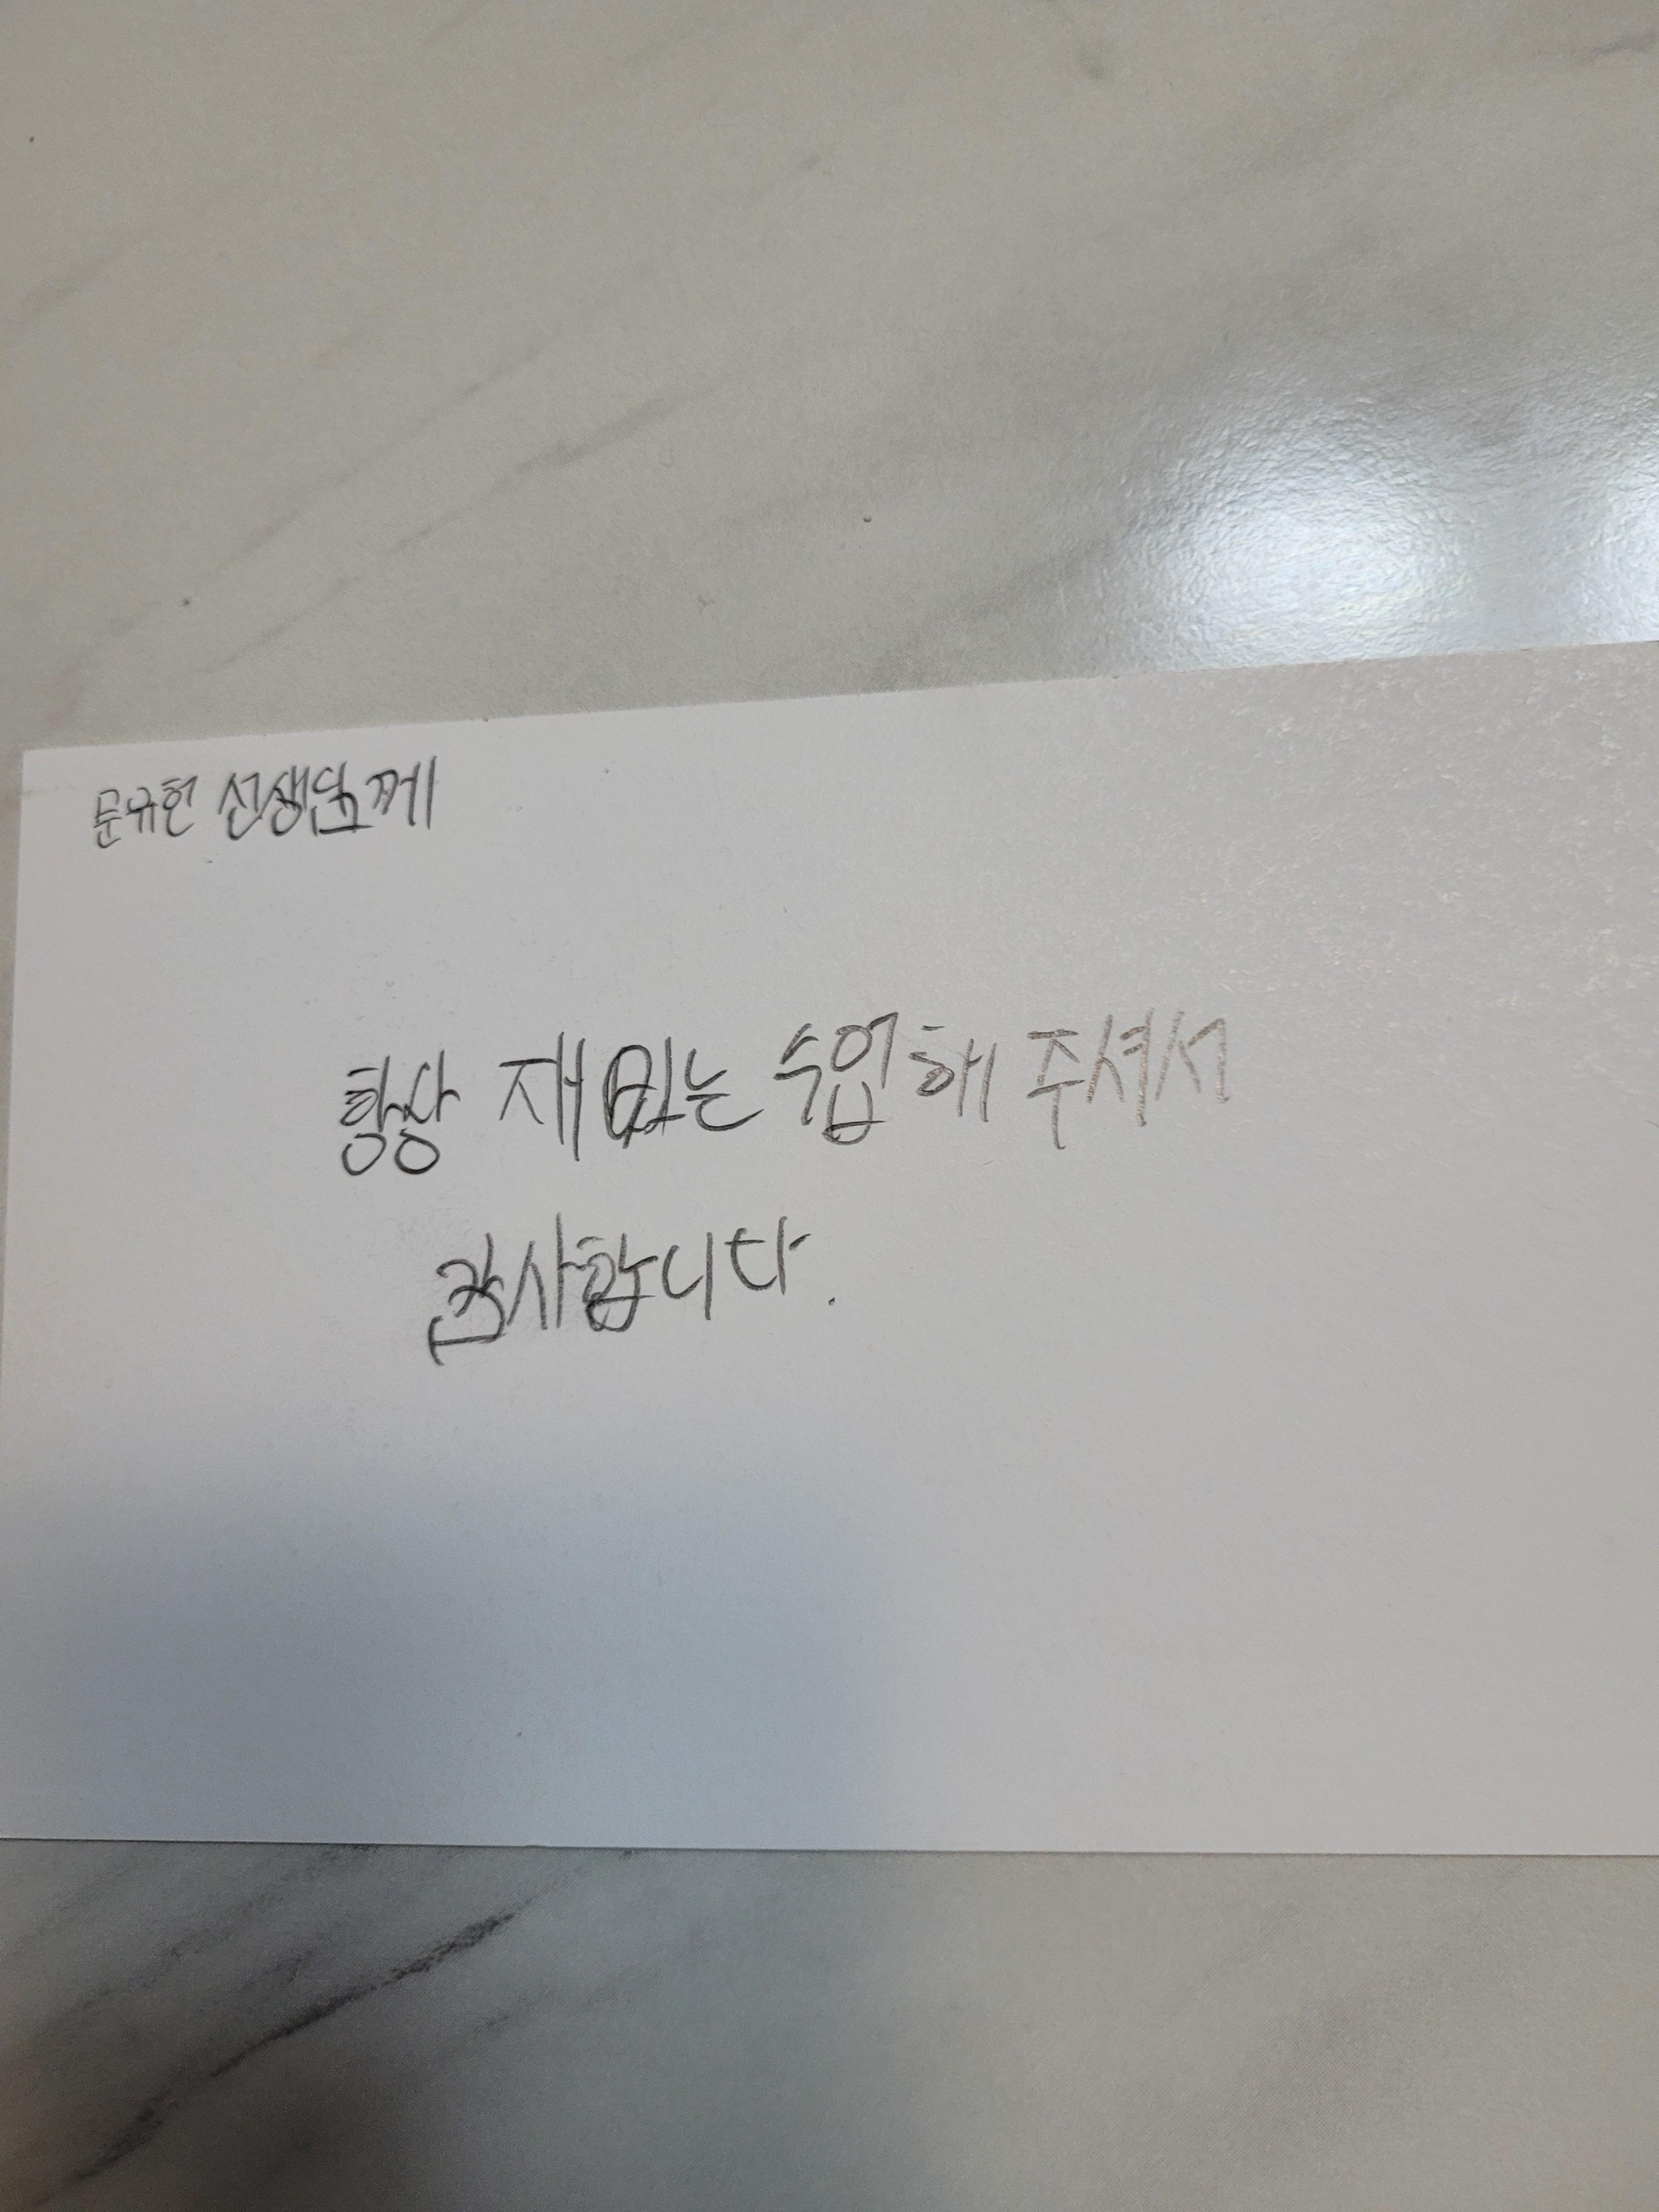 문규현 선생님께
항상 재밌는 수업해 주셔서
감사합니다.